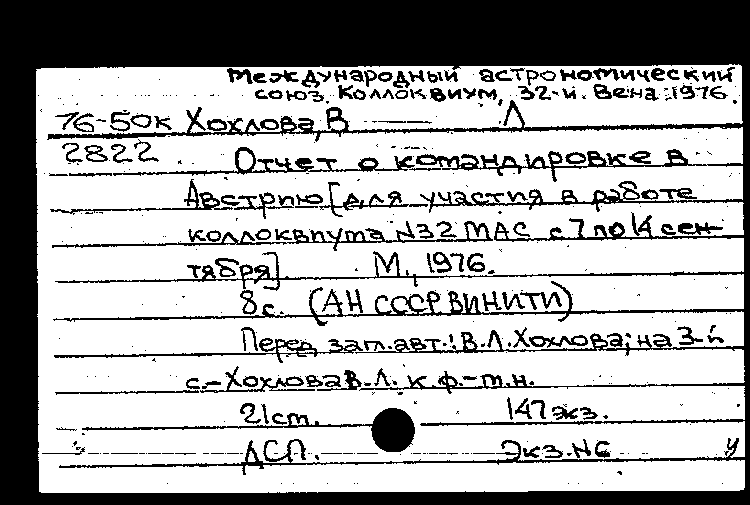 Международный астрономический
союз. Коллоквиум, 32-й. Вена. 1976.
76-50к Хохлова, В Л
2822 Отчет о командировке в
Австрию [для участия в работе
коллоквиума N32 МАС с 7 по 14 сен-
тября]. М., 1976.
8 с. (АН СССР ВИНИТИ)
Перед загл. авт.: В.Л. Хохлова; на 3-й
с.- Хохлова В.Л. к.ф.-м.н.
21 cm. 147 экз.
ДСП. Экз. N6 у